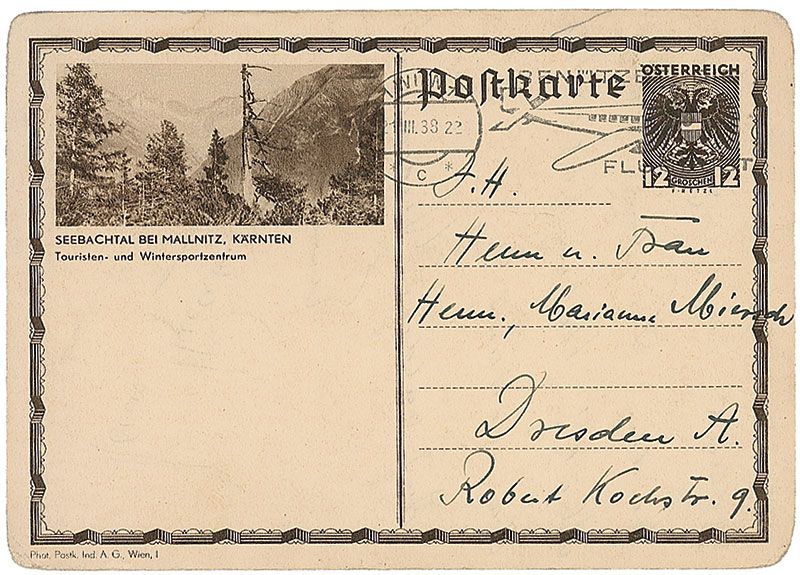 Postkarte
ÖSTERREICH
12 GROSCHEN 12
WIEN
III.38 22
C *
BENÜTZE
FLU
T
S.H.
Herrn u. Frau
Herm. Marianne Miersch
Dresden A.
Robert Kochstr. 9.
SEEBACHTAL BEI MALLNITZ, KÄRNTEN
Touristen- und Wintersportzentrum
Phot. Postk. Ind. A. G., Wien, I